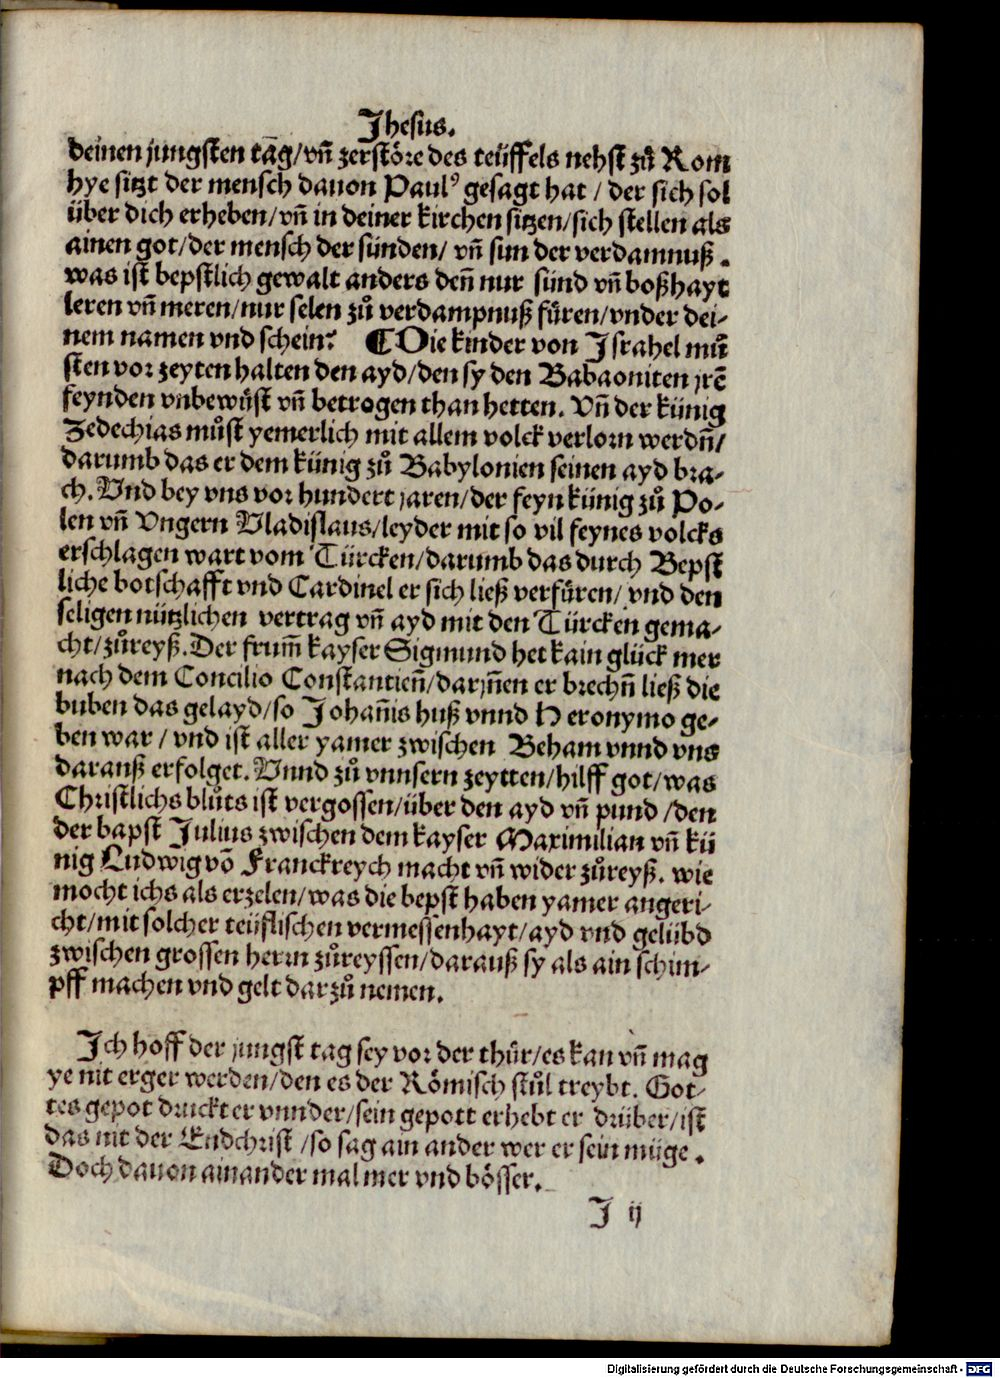 Jhesus.
deinen jungsten tāg/vñ zerstöre des teüffels nehst zů Rom
hye sitzt der mensch dauon Paul⁹ gesagt hat / der sich sol
über dich erheben/vñ in deiner kirchen sitzen/sich stellen als
ainen got/der mensch der sünden/ vñ sun der verdamnuß .
was ist bepstlich gewalt anders deñ nur sünd vñ boßhayt
leren vñ meren/nur selen zů verdampnuß füren/vnder dei-
nem namen vnd schein? ¶ Die kinder von Israhel můs
sten vor zeyten halten den ayd/den sy den Babaoniten jrē
feynden vnbewüst vñ betrogen than hetten. Vñ der künig
Zedechias můst yemerlich mit allem volck verlorn werdñ/
darumb das er dem künig zů Babylonien seinen ayd bra-
ch. Vnd bey vns vor hundert jaren/der feyn künig zů Po-
len vñ Vngern Vladislaus/leyder mit so vil feynes volcks
erschlagen wart vom Türcken/darumb das durch Bepst
liche botschafft vnd Cardinel er sich ließ verfüren/ vnd den
seligen nützlichen vertrag vñ ayd mit den Türcken gema-
cht/zůreyß. Der frum̄ kayser Sigmund het kain glück mer
nach dem Concilio Constantieñ/darjñen er brechñ ließ die
buben das gelayd/so Johañis huß vnnd Heronymo ge-
ben war / vnd ist aller yamer zwischen Beham vnnd vns
darauß erfolget. Vnnd zů vnnsern zeytten/hilff got/was
Christlichs blůts ist vergossen/über den ayd vñ pund /den
der bapst Julius zwischen dem kayser Maximilian vñ kü
nig Ludwig võ Franckreych macht vñ wider zůreyß. wie
mocht ichs als erzelen/was die bepst haben yamer angeri-
cht/mit solcher teüflischen vermessenhayt/ayd vnd gelübd
zwischen grossen herrn zůreyssen/darauß sy als ain schim-
pff machen vnd gelt darzů nemen.
Ich hoff der jungst tag sey vor der thür/es kan vñ mag
ye nit erger werden/den es der Römisch stůl treybt. Got-
tes gepot druckt er vnnder/sein gepott erhebt er drüber/ist
das nit der Endchrist /so sag ain ander wer er sein müge .
Doch dauon ainander mal mer vnd bösser.
J ij
Digitalisierung gefördert durch die Deutsche Forschungsgemeinschaft - DFG